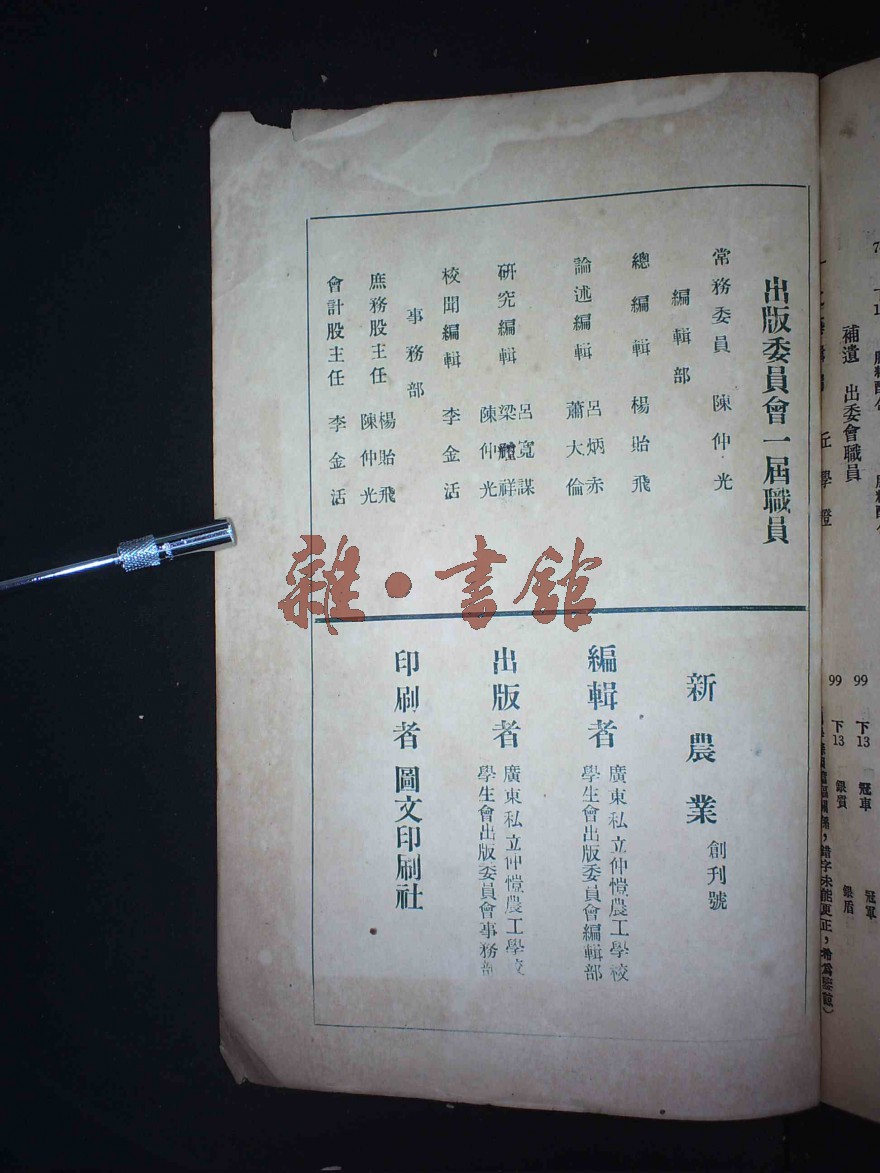 出版委員會一屆職員
常務委員 陳仲光
編輯部
總編輯 楊貽飛
論述編輯 呂炳赤
蕭大倫
研究編輯 呂寬謀
梁體祥
陳仲光
校聞編輯 李金活
事務部
庶務股主任 楊貽飛
陳仲光
會計股主任 李金活
新農業 創刊號
編輯者 廣東私立仲愷農工學校
學生會出版委員會編輯部
出版者 廣東私立仲愷農工學校
學生會出版委員會事務部
印刷者 圖文印刷社
雜·書館
補遺 出委會職員
99 下13 冠車 冠軍
99 下13 銀質 銀盾
錯字未能更正,希為鑒諒)